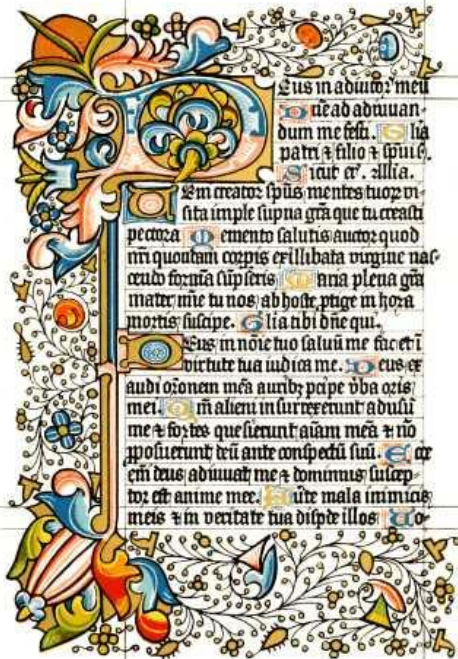 Deus in adiutoꝛ meũ
Dñe ad adiuuan-
dum me festi. Glia
patri ⁊ filio ⁊ spũi s̃.
Sicut er̃. Allia.
Uem creatoꝛ spũs mentes tuoꝝ vi-
sita imple supna grã que tu creasti
pectora Memento salutis auctoꝛ quod
nr̃i quondam coꝛpis ex illibata virgine nas-
cendo foꝛmã sũpseris Maria plena grã
mater mie tu nos ab hoste ptige in hora
moꝛtis suscipe. Glia tibi dñe qui.
Deus in nõie tuo saluũ me fac et ĩ
virtute tua iudica me. Deus ex
audi oꝛonem meã auribꝫ pcipe vba oꝛis
mei. Qm̃ alieni insurrexerunt adusũ
me ⁊ foꝛtes quesierunt aĩam meã ⁊ nõ
pposuerunt deũ ante conspectũ suũ. Ecce
em̃ deus adiuuat me ⁊ dominus suscep-
toꝛ est anime mee. Auṽte mala inimicis
meis ⁊ in veritate tua dispde illos Uo-